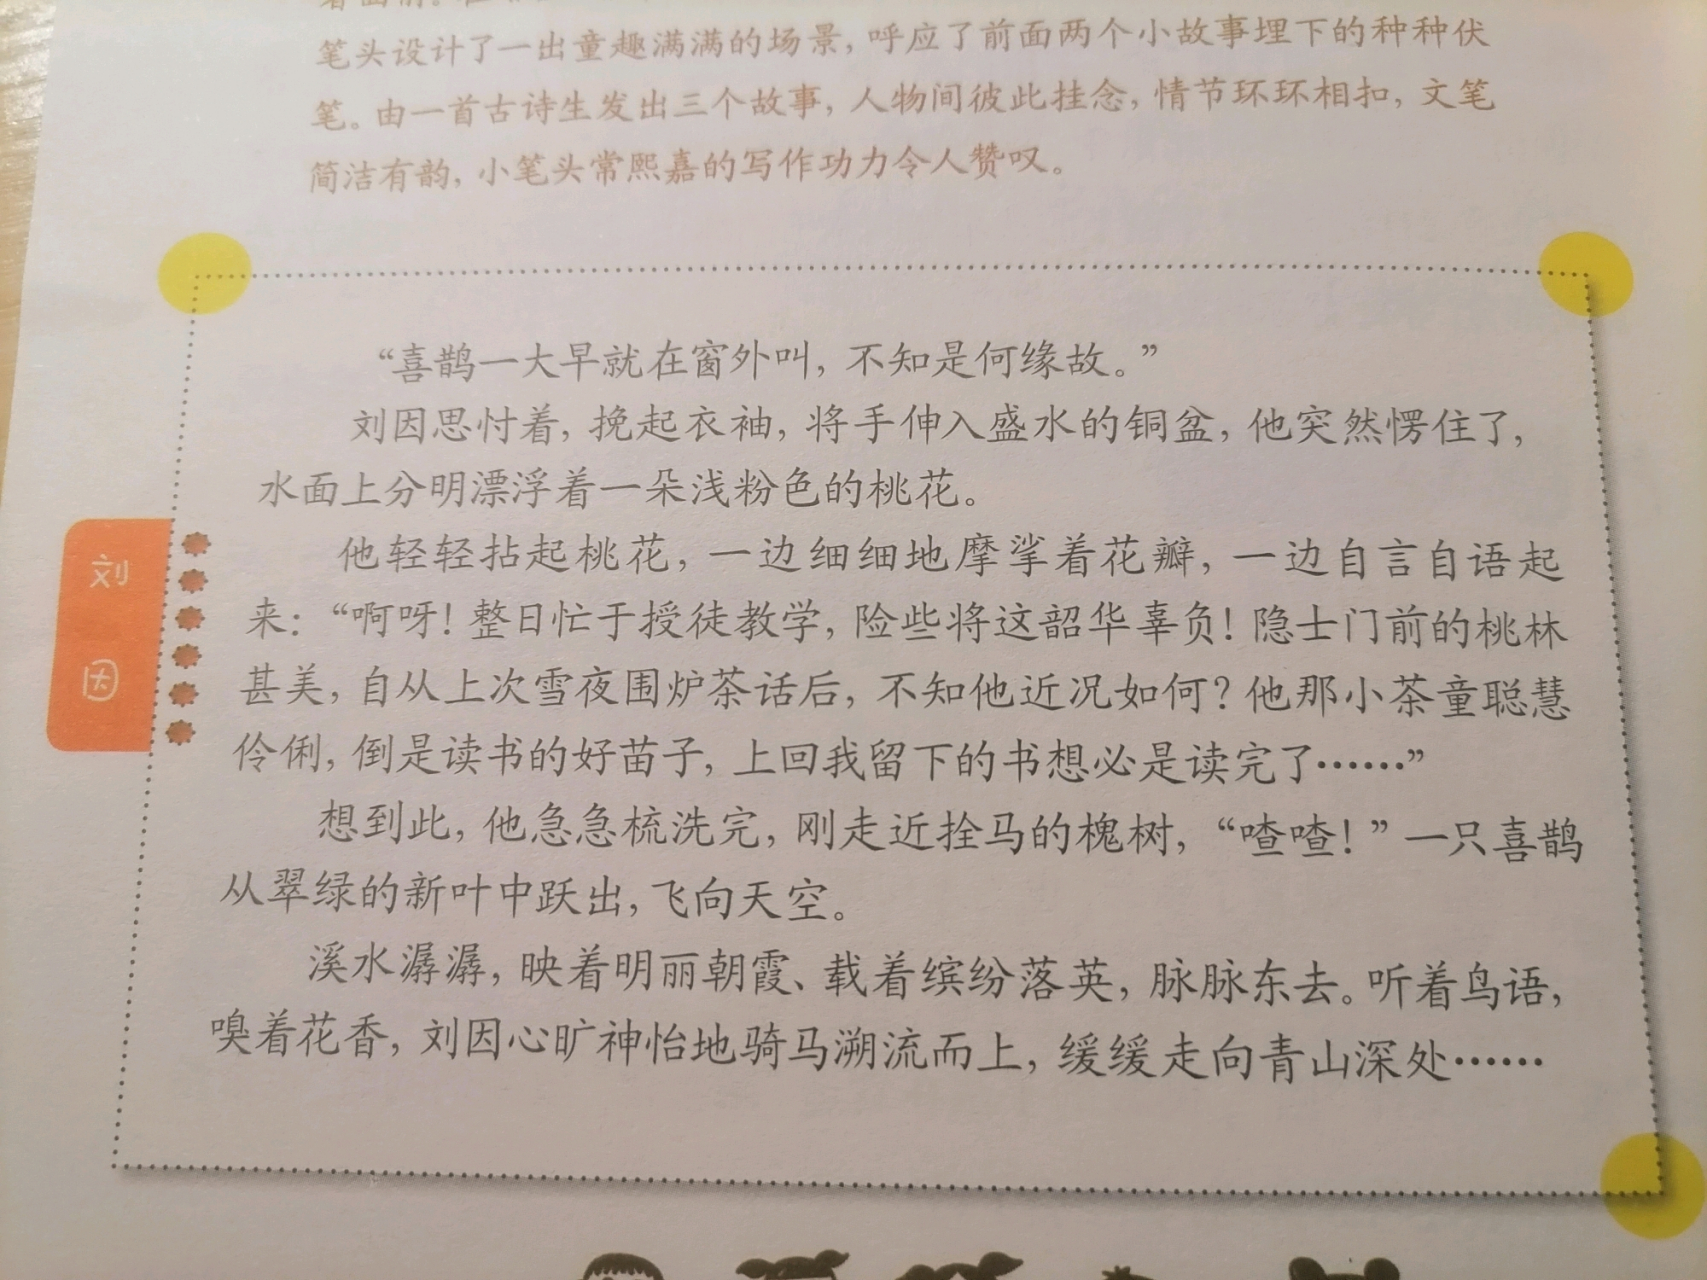 笔头设计了一出童趣满满的场景，呼应了前面两个小故事埋下的种种伏
笔。由一首古诗生发出三个故事，人物间彼此挂念，情节环环相扣，文笔
简洁有韵，小笔头常熙嘉的写作功力令人赞叹。
“喜鹊一大早就在窗外叫，不知是何缘故。”
刘因思忖着，挽起衣袖，将手伸入盛水的铜盆，他突然愣住了，
水面上分明漂浮着一朵浅粉色的桃花。
他轻轻拈起桃花，一边细细地摩挲着花瓣，一边自言自语起
来：“啊呀！整日忙于授徒教学，险些将这韶华辜负！隐士门前的桃林
甚美，自从上次雪夜围炉茶话后，不知他近况如何？他那小茶童聪慧
伶俐，倒是读书的好苗子，上回我留下的书想必是读完了……”
想到此，他急急梳洗完，刚走近拴马的槐树，“喳喳！”一只喜鹊
从翠绿的新叶中跃出，飞向天空。
溪水潺潺，映着明丽朝霞、载着缤纷落英，脉脉东去。听着鸟语，
嗅着花香，刘因心旷神怡地骑马溯流而上，缓缓走向青山深处……
刘
因